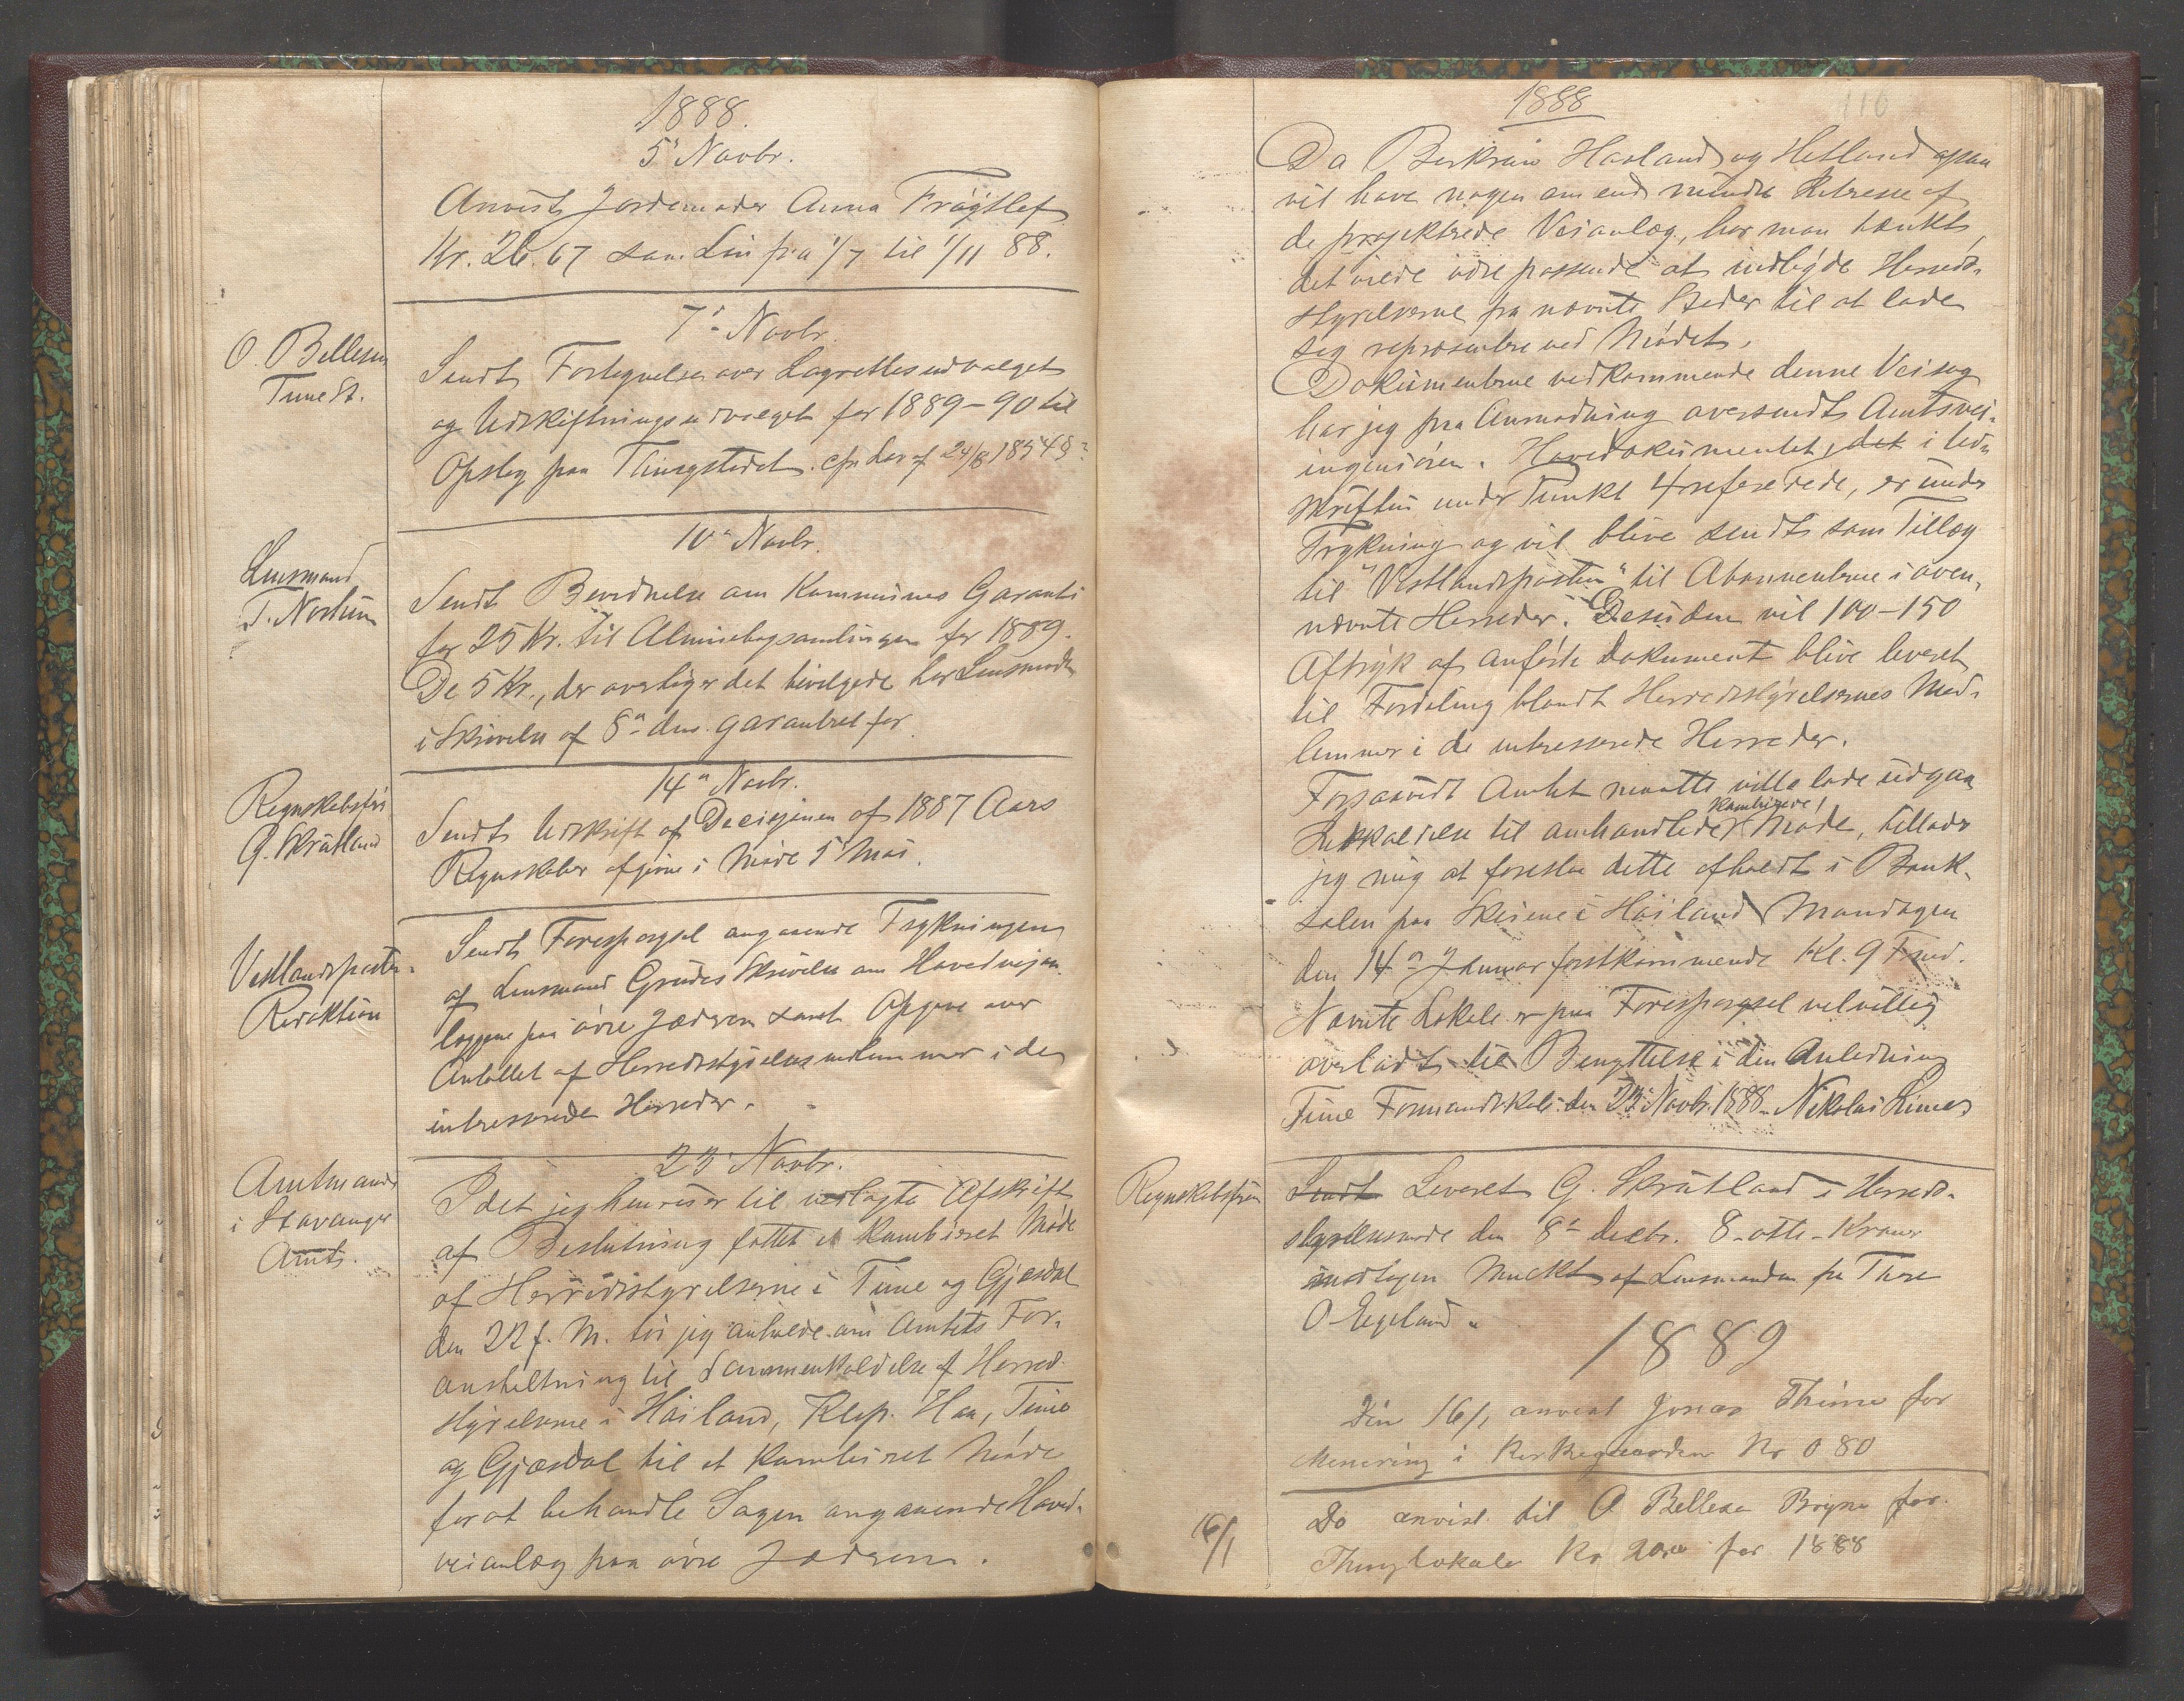 1888.
5' Novbr.
Anvist Jordemoder Anna
Kr. 26.67 som Løn fra 1/7 til 1/11 88.
7de Novbr.
O. Bellesen
Time St.
Sendt Fortegnelse over Lagrettesudvalget
og Udskiftningsudvalget for 1889-90 til
Opslag paa Thingstedet. cfr Lov af 24/8 1854 §
10de Novbr.
Lensmand
T. Norheim
Sendt Bevidnelse om Kommunes Garanti
for 25 Kr. til Almuebogsamlingen for 1889.
De 5 Kr., der overstiger det bevilgede har Lensmanden
i Skrivelse af 8de dns. garanteret for.
14de Novbr.
Regnskabsfør
G. Skrudland
Sendt Udskrift af Decisjonen af 1887 Aars
Regnskaber afgivne i Møde 5 Mai.
Vestlandsposten-
Redaktion
Sendt Forespørgsel angaaende Trykningen
af Lensmand Grudes Skrivelse om Hovedveian-
læggene paa øvre Jæderen samt Opgave over
Antallet af Herredsstyrelsesmedlemmer i de
interesserede Herreder.
23' Novbr.
Amtmanden
i Stavanger
Amt.
Idet jeg henviser til vedlagte Afskrift
af Beslutning fattet i kombineret Møde
af Herredsstyrelserne i Time og Gjesdal
den 22 f. M. tør jeg anholde om Amtets For-
anstaltning til Sammenkaldelse af Herred-
styrelserne i Høiland, Klep, Haa, Time
og Gjæsdal til et kombineret Møde
for at behandle Sagen angaaende Hoved-
veianlæg paa øvre Jæderen.
1888
110
Da Berkreim Havland og Hetland ogsaa
vil have nogen om end mindre Interesse af
de projekterede Veianlæg, har man tænkt
det vilde være passende at indbyde Herreds-
styrelserne fra nævnte Steder til at lade
sig repræsentere ved Mødet.
Dokumenterne vedkommende denne Veisag
har jeg paa Anmodning oversendt Amtsvei-
ingeniøren. Hoveddokumentet, det i Ud-
skriften under Punkt 4 refererede, er under
Trykning og vil blive sendt som Tillæg
til "Vestlandsposten" til Abonnenterne i oven-
nævnte Herreder. Desuden vil 100-150
Aftryk af anførte Dokument blive leveret
til Fordeling blandt Herredsstyrelsernes Med-
lemmer i de interesserede Herreder.
Forsaavidt Amtet maatte ville lade udgaa
kombinerede
Indkaldelse til omhandlede Møde, tillader
jeg mig at foreslaa dette afholdt i Bank-
salen paa Skeiene i Høiland Mandagen
den 14de Januar førstkommende Kl. 9 Fmd.
Nævnte Lokale er paa Forespørgsel velvillig
overladt til Benyttelse i den Anledning
Time Formandskab den 23' Novbr. 1888. Nikolai Lima
Regnskabsføren
Sendt Leveret G. Skrudland i Herreds-
styrelsesmøde den 8de Decbr. 8 - otte - Kroner
modtagen Mulkt af Lensmanden fra Thore
O Egeland.
1889
Den 16/1 anvist Jonas Thime for
Minering i Kirkegaarden Kr 0 80
16/1
Do anvist til O Bellesen Bryne for
Thinglokale Kr for 1888